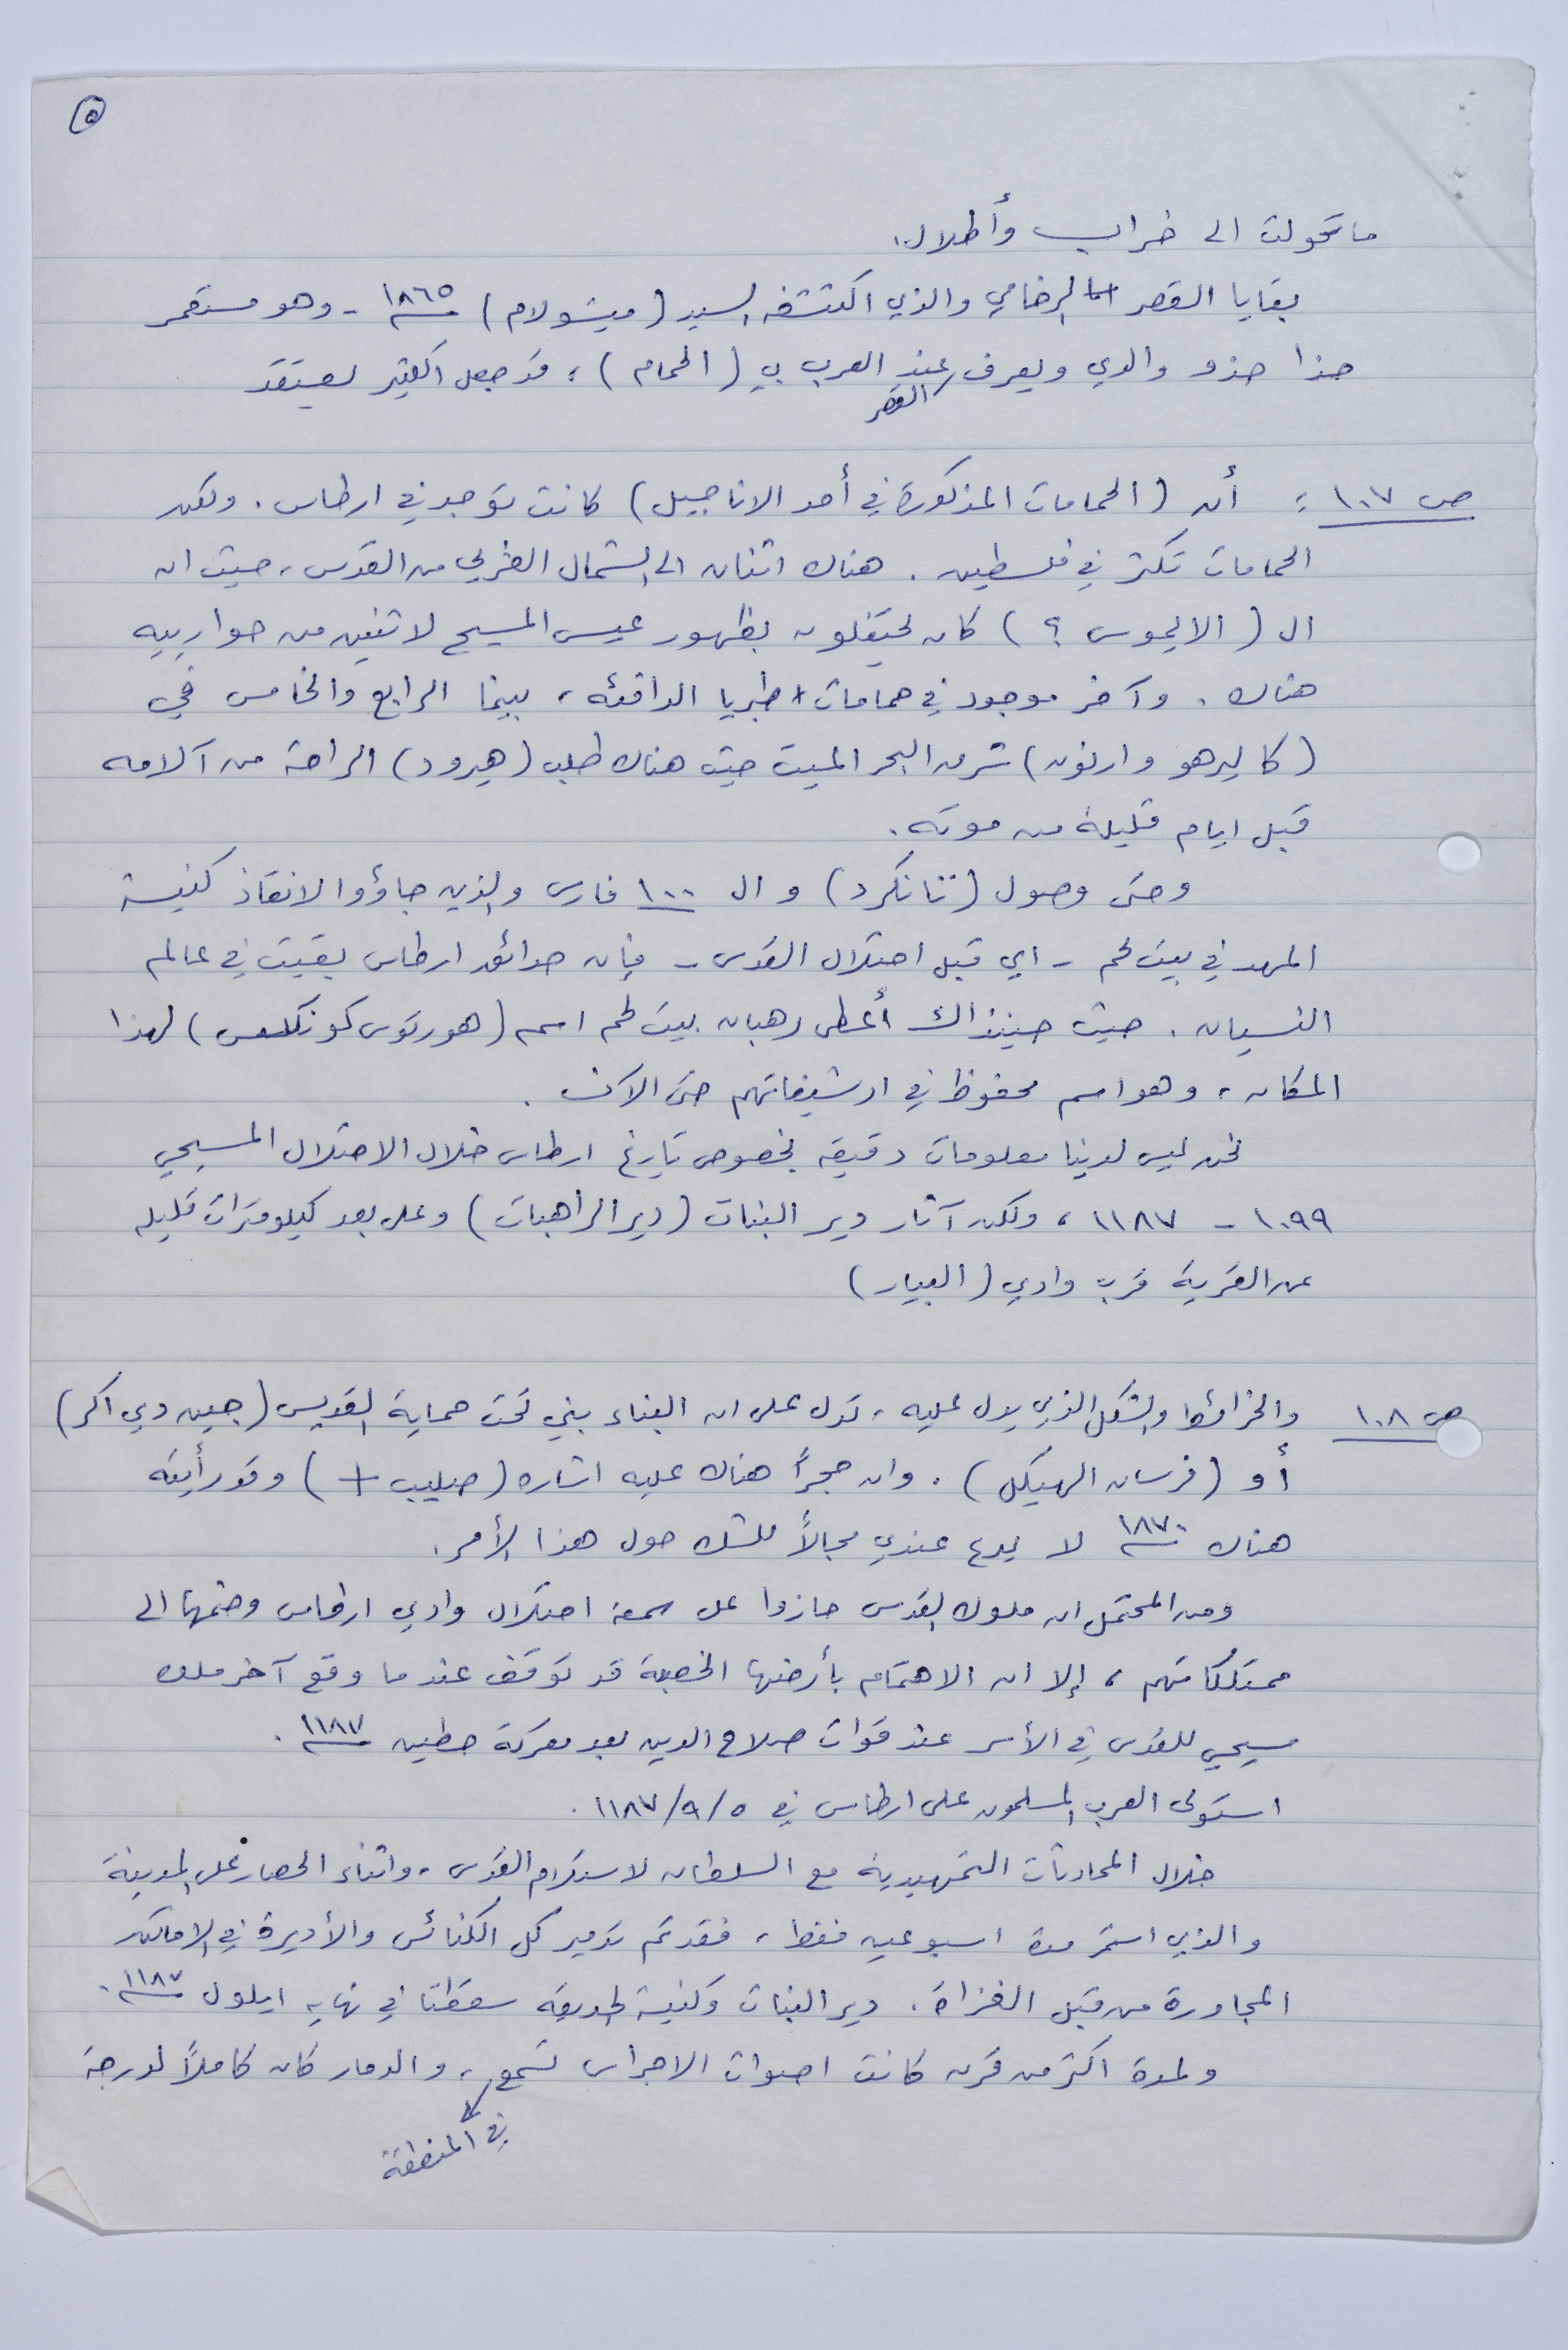 ٥
ما تحولت الى خراب وأطلال.
بقايا القصر الرخامي والذي اكتشفه السيد (ميشولام) سنة ١٨٦٥ - وهو مستعمر
حذا حذو والدي ويعرف القصر عند العرب بـ (الحمام)، قد جعل الكثير يعتقد
ص ١٠٧ : أن (الحمامات المذكورة في أحد الاناجيل) كانت توجد في ارطاس. ولكن
الحمامات تكثر في فلسطين. هناك اثنان الى الشمال الغربي من القدس، حيث ان
ال (الايموس ؟) كان يحتفلون بظهور عيسى المسيح لاثنين من حوارييه
هناك. وآخر موجود في حمامات طبريا الدافئه، بينما الرابع والخامس في
(كاليرهو وارنون) شرق البحر الميت حيث هناك طلب (هيرود) الراحة من آلامه
قبل ايام قليلة من موته.
وحتى وصول (تانكرد) و ال ١٠٠ فارس والذين جاؤوا لانقاذ كنيسة
المهد في بيت لحم - اي قبل احتلال القدس - فإن حدائق ارطاس بقيت في عالم
النسيان. حيث حينذاك أعطى رهبان بيت لحم اسم (هورتوس كونكلسس) لهذا
المكان، وهو اسم محفوظ في ارشيفاتهم حتى الآن.
نحن ليس لدينا معلومات دقيقه بخصوص تاريخ ارطاس خلال الاحتلال المسيحي
١٠٩٩ - ١١٨٧، ولكن آثار دير البنات (دير الراهبات) وعلى بعد كيلومترات قليله
عن القرية قرب وادي (البيار)
ص ١٠٨ والخرائط والشكل الذي يدل عليه، تدل على ان البناء بني تحت حماية القديس (جين دي اكر)
أو (فرسان الهيكل). وان حجراً هناك عليه اشاره (صليب +) وقد رأيته
هناك سنة ١٨٧٠ لا يدع عندي مجالاً للشك حول هذا الأمر.
ومن المحتمل ان ملوك القدس حازوا على سمعة احتلال وادي ارطاس وضمها الى
ممتلكاتهم، إلا ان الاهتمام بأرضها الخصبة قد توقف عندما وقع آخر ملك
مسيحي للقدس في الأسر عند قوات صلاح الدين بعد معركة حطين سنة ١١٨٧.
استولى العرب المسلمون على ارطاس في ٥/٩/١١٨٧.
خلال المحادثات التمهيدية مع السلطان لاستلام القدس، واثناء الحصار على المدينة
والذي استمر مدة اسبوعين فقط، فقد تم تدمير كل الكنائس والأديرة في الاماكن
المجاورة من قبل الغزاة. دير البنات وكنيسة الحديقه سقطتا في نهايه ايلول سنة ١١٨٧.
ولمدة اكثر من قرن كانت اصوات الاجراس تسمع في المنطقة، والدمار كان كاملاً لدرجة